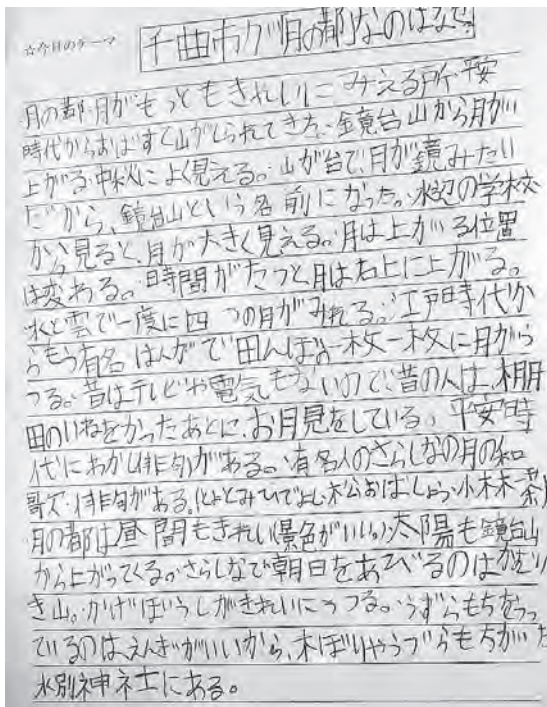 ☆今日のテーマ
千曲市が「月の都」なのはなぜ?
月の都・月がもっともきれいにみえる所・平安
時代からおばすて山がしられてきた・鏡台山から月が
上がる・中秋によく見える。・山が台で、月が鏡みたい
だから、鏡台山という名前になった。・水辺の学校
から見ると、月が大きく見える。・月は上がる位置
は変わる。・時間がたつと月は右上に上がる。
水と雲で一度に四つの月がみれる。・江戸時代か
らもう有名 はんがで田んぼの一枚一枚に月がう
つる。・昔はテレビや電気もないので、昔の人は、棚
田のいねをかったあとに、お月見をしている。平安時
代にわか(俳句)がある。・有名人のさらしなの月の和
歌・俳句がある。(とよとみひでよし・松おばしょう・小林一茶)
月の都は昼間もきれい(景色がいい。)・太陽も鏡台山
から上がってくる。・さらしなで朝日をあびるのはかむり
き山。・かげぼうしがきれいにうつる。・うずらもちをうっ
ているのは、えんぎがいいから、木ぼりやうづらもちが
水別神社にある。